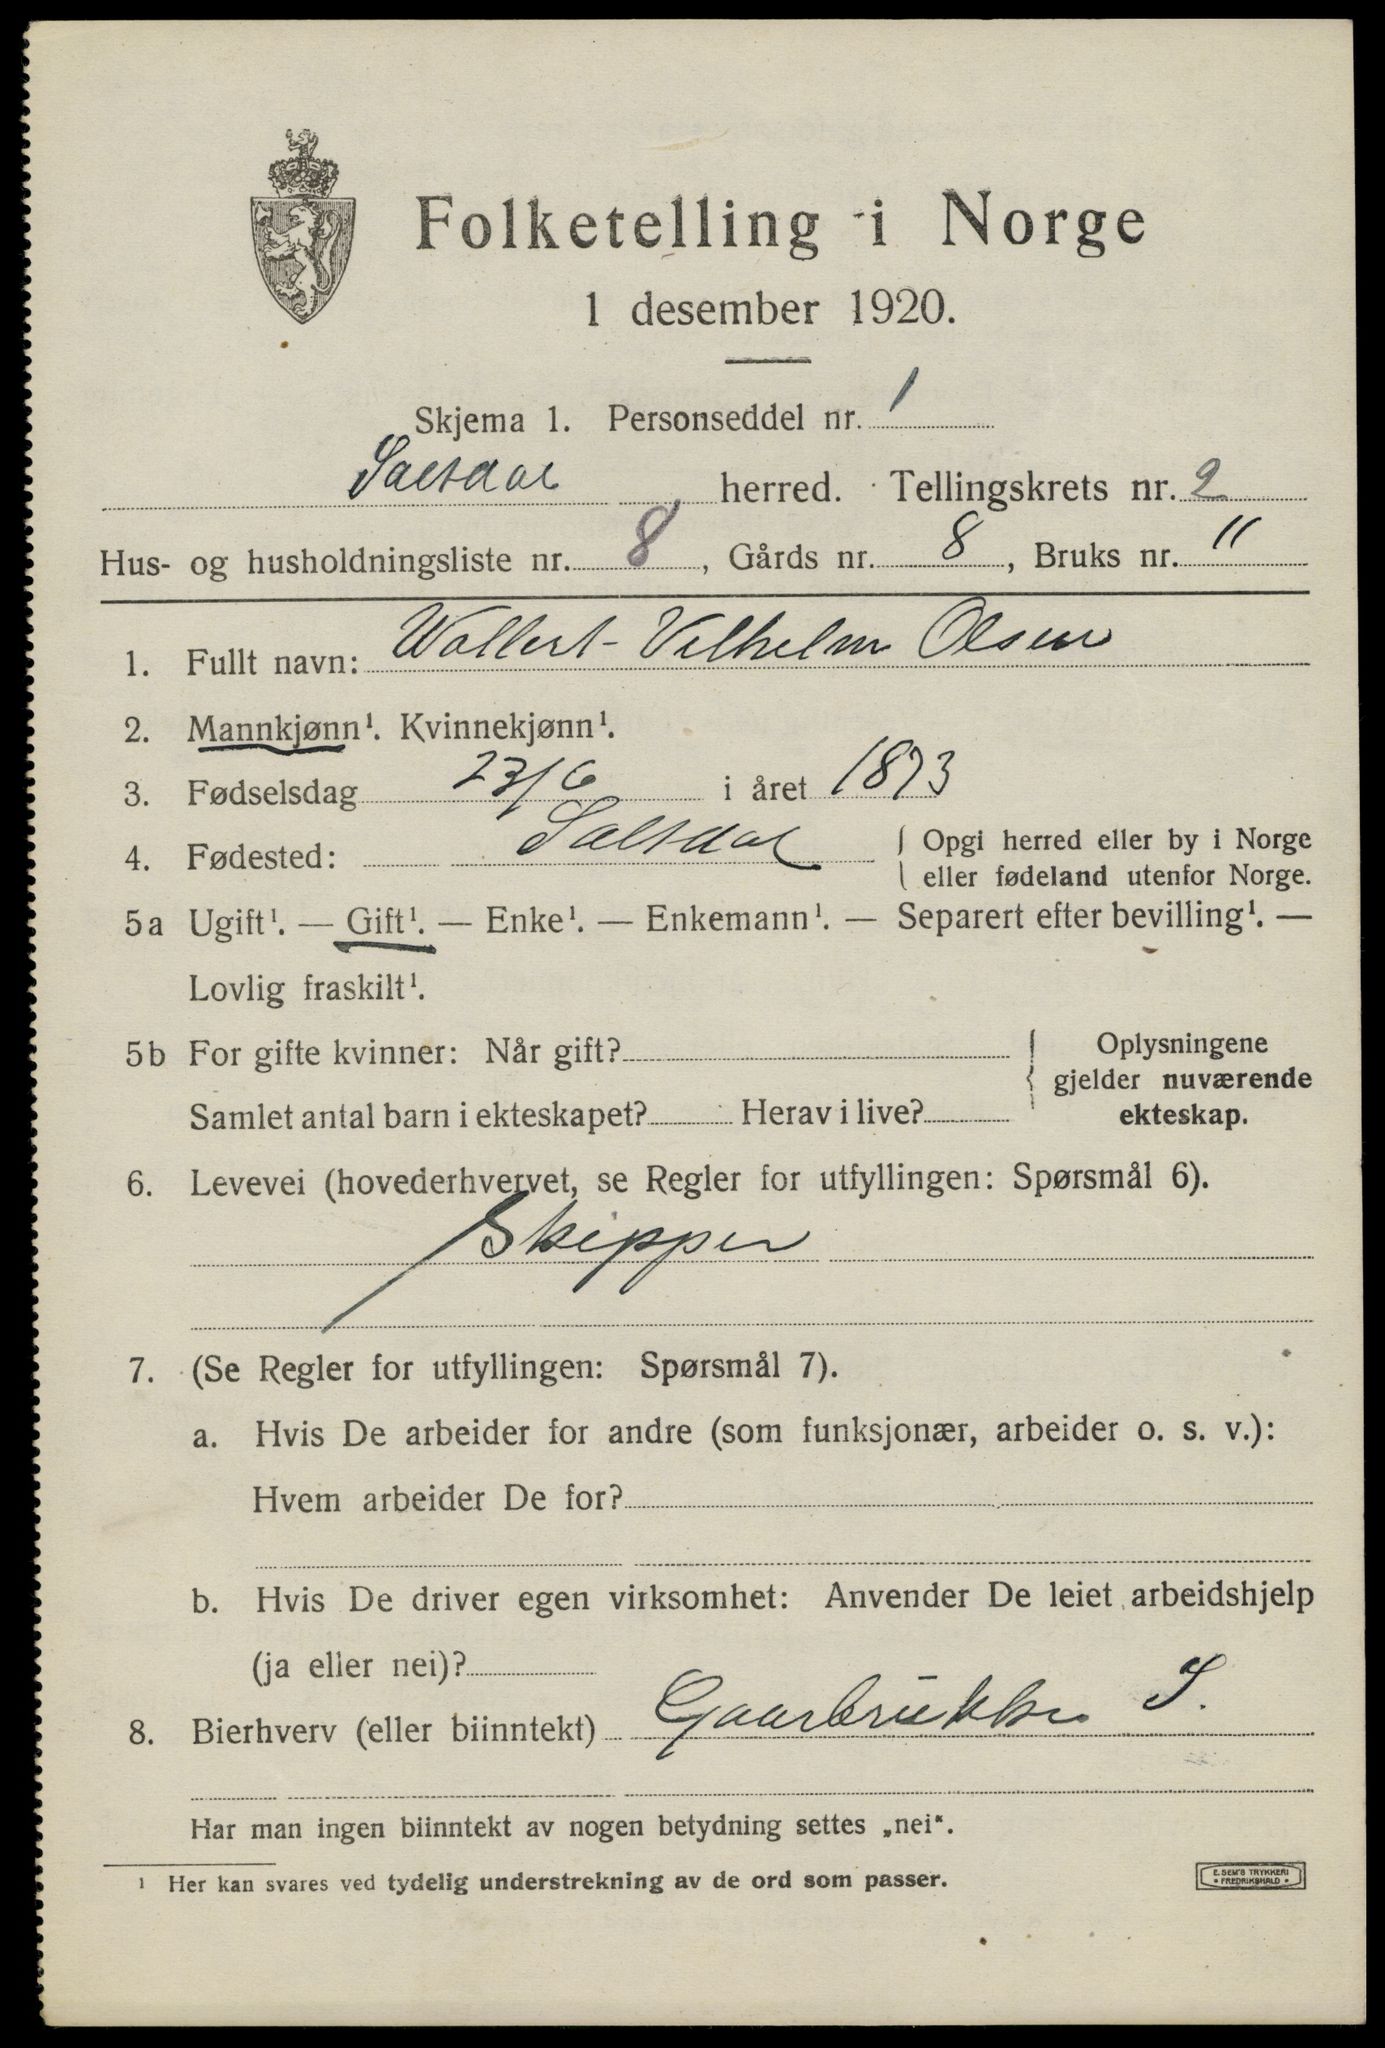 Folketelling i Norge
1 desember 1920.
Skjema 1. Personseddel nr. 1
Saltdal herred. Tellingskrets nr. 2
Hus- og husholdningsliste nr. 8, Gårds nr. 8, Bruks nr. 11
1. Fullt navn: Wollert-Vilhelm Olsen
2. Mannkjønn¹. Kvinnekjønn¹.
3. Fødselsdag 23/6 i året 1873
4. Fødested: Saltdal { Opgi herred eller by i Norge
eller fødeland utenfor Norge.
5a Ugift¹. — Gift¹. — Enke¹. — Enkemann¹. — Separert efter bevilling¹. —
Lovlig fraskilt¹.
5b For gifte kvinner: Når gift? { Oplysningene
gjelder nuværende
Samlet antal barn i ekteskapet? Herav i live? ekteskap.
6. Levevei (hovederhvervet, se Regler for utfyllingen: Spørsmål 6).
Skipper
7. (Se Regler for utfyllingen: Spørsmål 7).
a. Hvis De arbeider for andre (som funksjonær, arbeider o. s. v.):
Hvem arbeider De for?
b. Hvis De driver egen virksomhet: Anvender De leiet arbeidshjelp
(ja eller nei)?
8. Bierhverv (eller biinntekt) Gaarbrukker S.
Har man ingen biinntekt av nogen betydning settes „nei“.
¹ Her kan svares ved tydelig understrekning av de ord som passer.
E. SEM'S TRYKKERI
• FREDRIKSHALD •